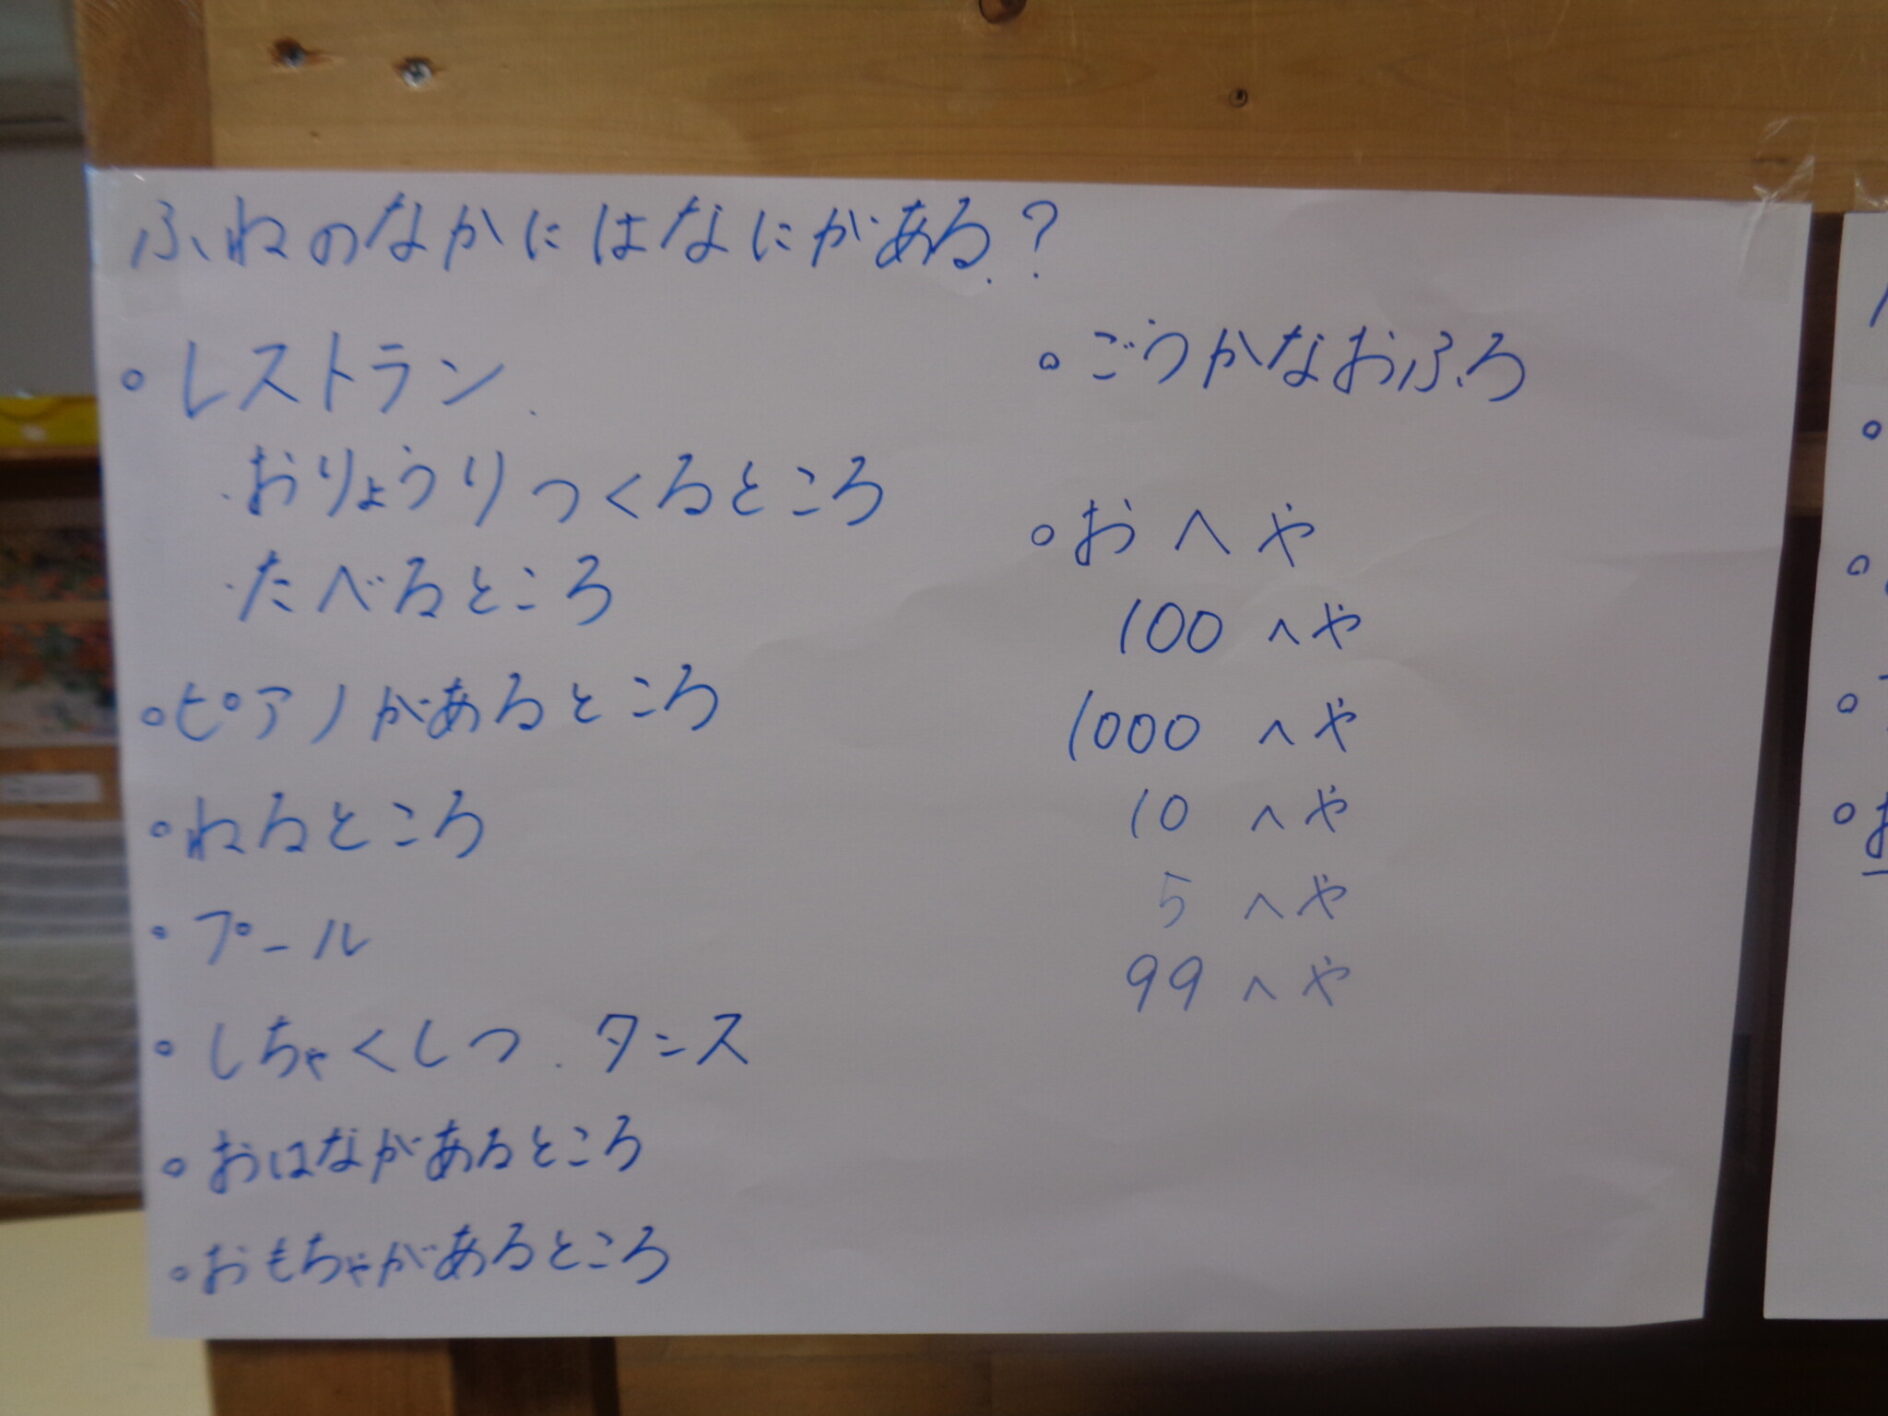 ふねのなかにはなにがある?
○ レストラン
・おりょうりつくるところ
・たべるところ
○ピアノがあるところ
○ねるところ
○プール
○しちゃくしつ.タンス
○おはながあるところ
○おもちゃがあるところ
○ごうかなおふろ
○おへや
100 へや
1000 へや
10 へや
5 へや
99 へや